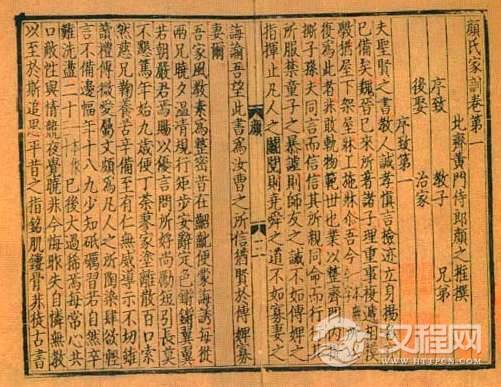 顔氏家訓卷第一
北齊黄門侍郎顔之推撰
序致 教子 兄弟
後娶 治家
序致第一
夫聖賢之書教人誠孝慎言檢迹立身揚名亦
已備矣魏晉已來所著諸子理重事複遞相模
斆猶屋下架屋牀上施牀爾吾今所以
復為此者非敢軌物範世也業以整齊門内提
撕子孫夫同言而信信其所親同命而行行其
所服禁童子之暴謔則師友之誡不如傅婢之
指揮止凡人之鬭鬩則堯舜之道不如寡妻之
顔一
誨諭吾望此書為汝曹之所信猶賢於傅婢寡
妻爾
吾家風教素為整密昔在齠齔便蒙誨誘每從
兩兄曉夕温凊規行矩步安辭定色鏘鏘翼翼
若朝嚴君焉賜以優言問所好尚勵短引長莫
不懇篤年始九歲便丁荼蓼家塗離散百口索
然慈兄鞠養苦辛備至有仁無威導示不切雖
讀禮傳微愛屬文頗為凡人之所陶染肆欲輕
言不備邊幅年十八九少知砥礪習若自然卒
難洗盪二十已後大過稀焉每常心共
口敵性與情競夜覺曉非今悔昨失自憐無教
以至於斯追思平昔之指銘肌鏤骨非徒古書
汉程网
httpcn.com